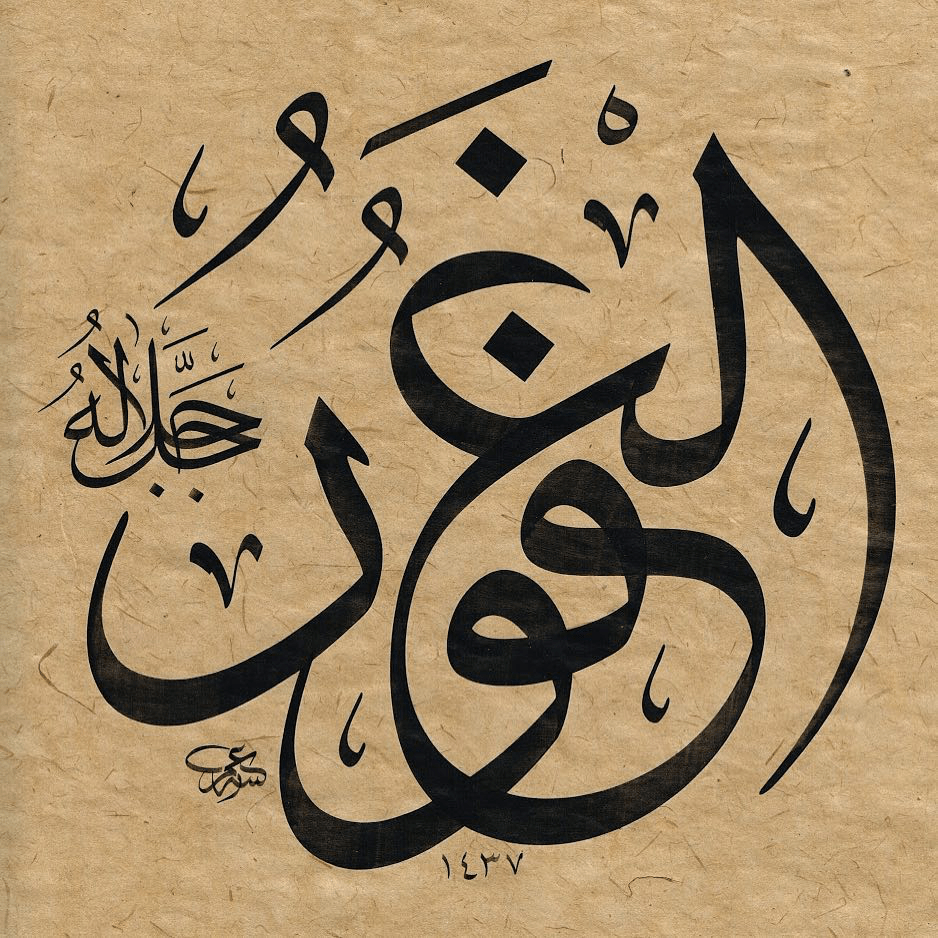 الْغَفُورُ
جَلَّ جَلَالُهُ
١٤٣٧